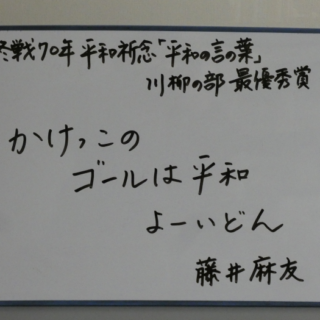 終戦70年平和祈念「平和の言の葉」
川柳の部 最優秀賞
かけっこの
ゴールは平和
よーいどん
藤井麻友